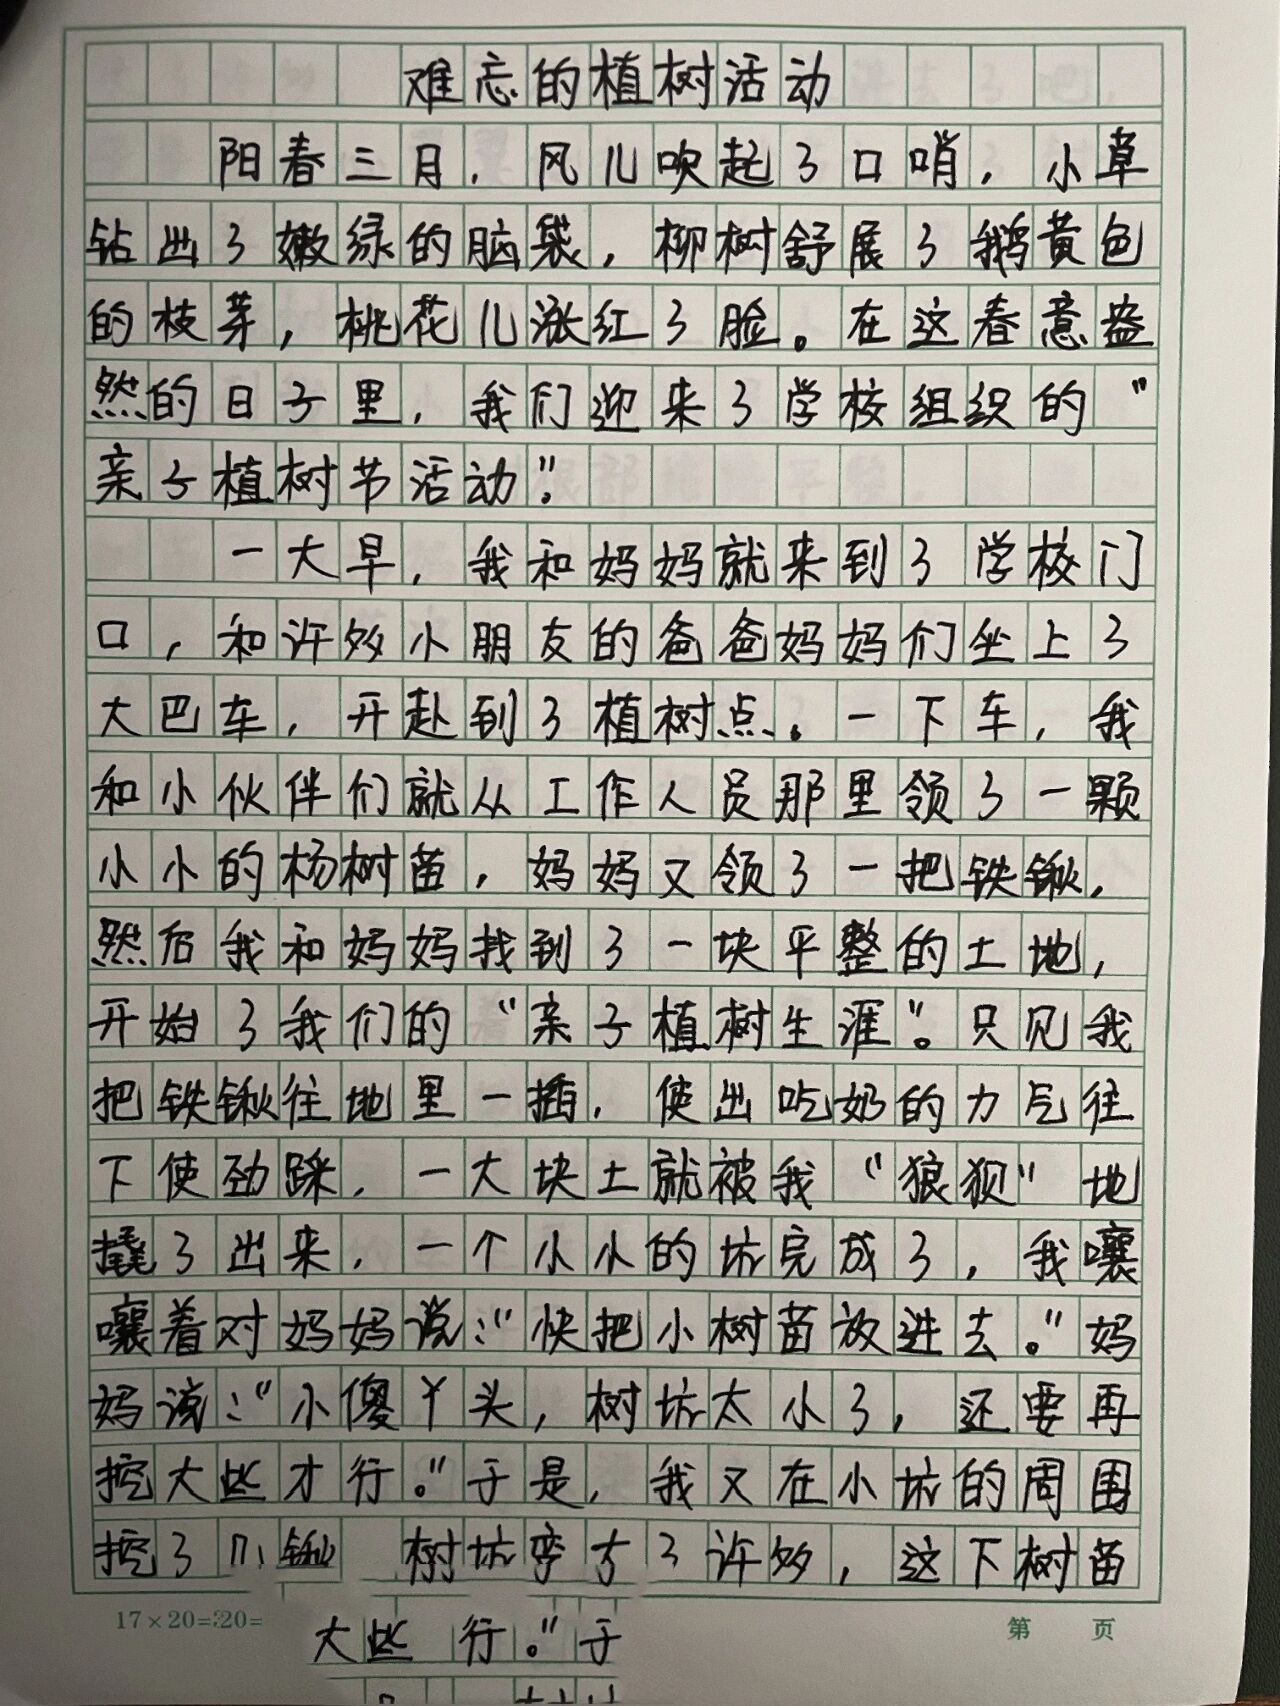 难忘的植树活动
阳春三月，风儿吹起了口哨，小草
钻出了嫩绿的脑袋，柳树舒展了鹅黄色
的枝芽，桃花儿涨红了脸。在这春意盎
然的日子里，我们迎来了学校组织的“
亲子植树节活动”。
一大早，我和妈妈就来到了学校门
口，和许多小朋友的爸爸妈妈们坐上了
大巴车，开赴到了植树点。一下车，我
和小伙伴们就从工作人员那里领了一颗
小小的杨树苗，妈妈又领了一把铁锹，
然后我和妈妈找到了一块平整的土地，
开始了我们的“亲子植树生涯”。只见我
把铁锹往地里一插，使出吃奶的力气往
下使劲踩，一大块土就被我“狼狈”地
撬了出来，一个小小的坑完成了，我嚷
嚷着对妈妈说：“快把小树苗放进去。”妈
妈说：“小傻丫头，树坑太小了，还要再
挖大些才行。”于是，我又在小坑的周围
挖了几锹 树坑变大了许多，这下树苗
17×20=320=
第 页
大些 行。”于